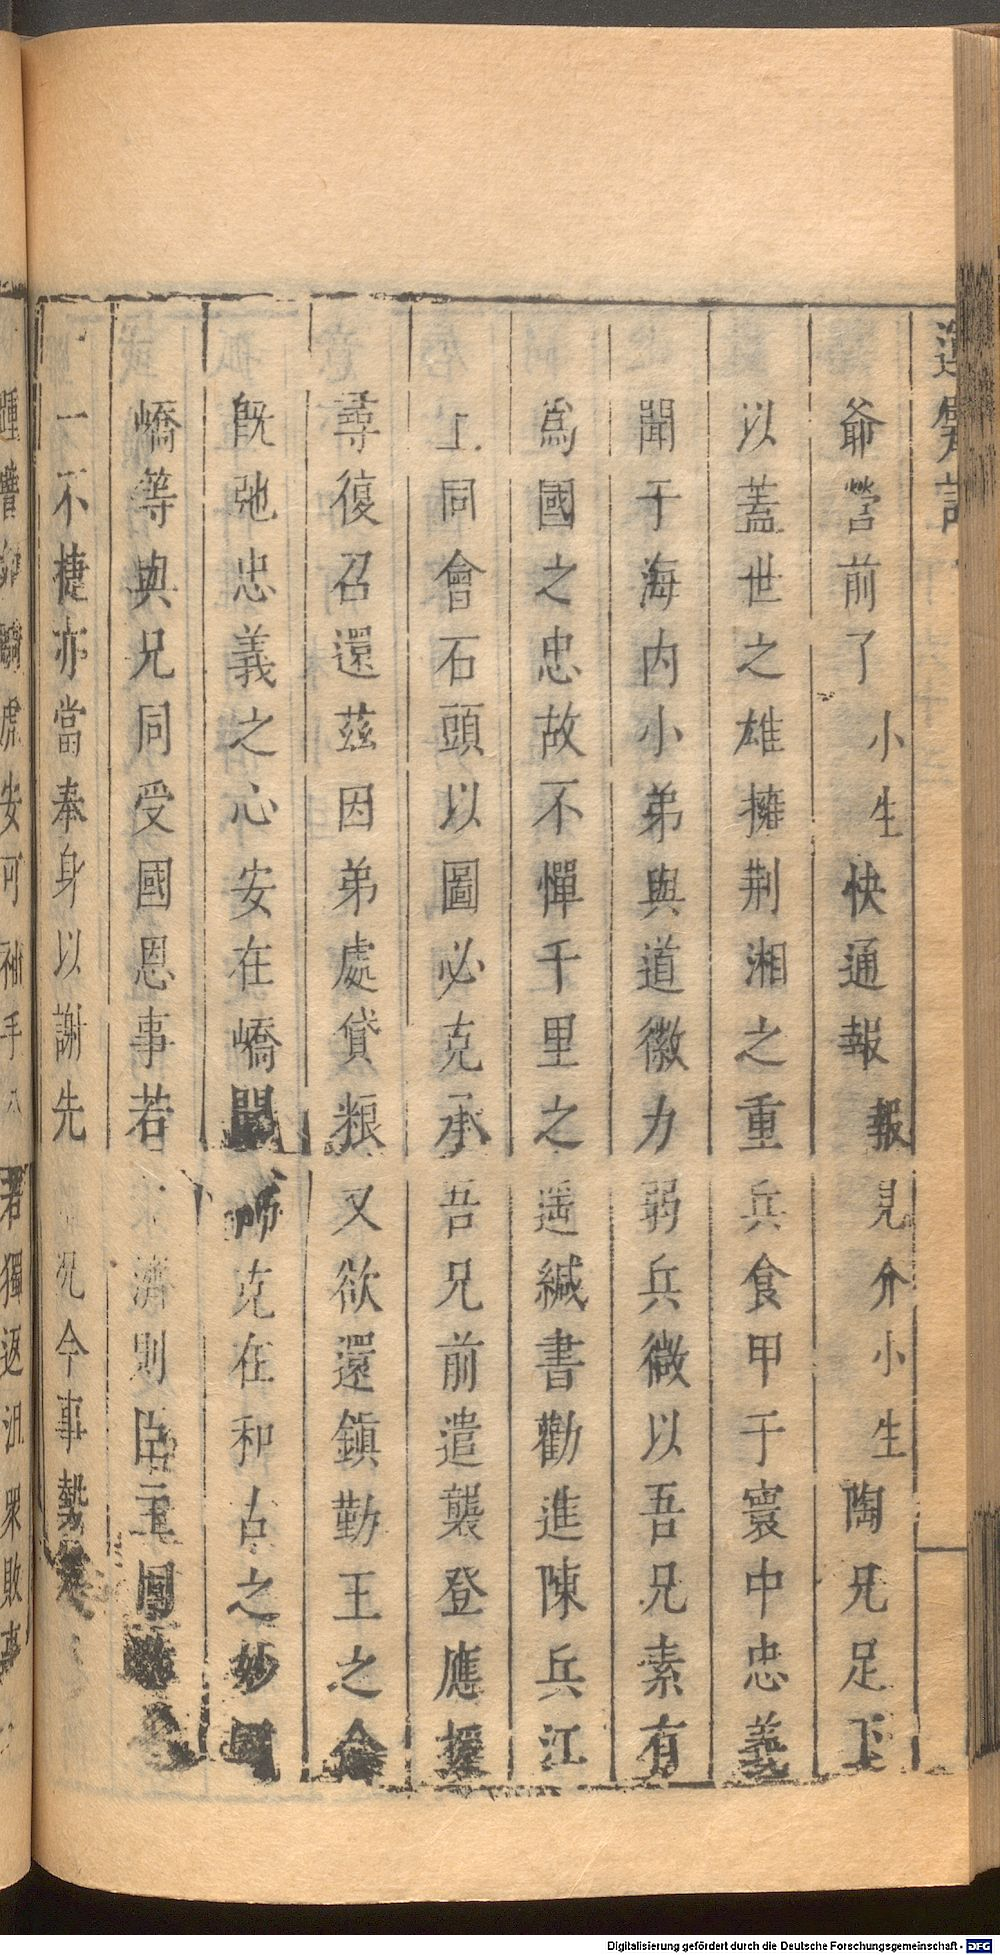 運甓記
爺營前了小生快通報報見介小生陶兄足下
以蓋世之雄擁荆湘之重兵食甲于寰中忠義
聞于海内小弟與道徽力弱兵微以吾兄素有
爲國之忠故不憚千里之遥緘書勸進陳兵江
上同會石頭以圖必克承吾兄前遣襲登應援
尋復召還茲因弟處貸粮又欲還鎮勤王之
既弛忠義之心安在嶠聞師克在和古之妙
嶠等與兄同受國恩事若濟則臣主同
一不捷亦當奉身以謝先況今事勢
騎虎安可袖手 君獨返沮眾敗事
Digitalisierung gefördert durch die Deutsche Forschungsgemeinschaft - DFG